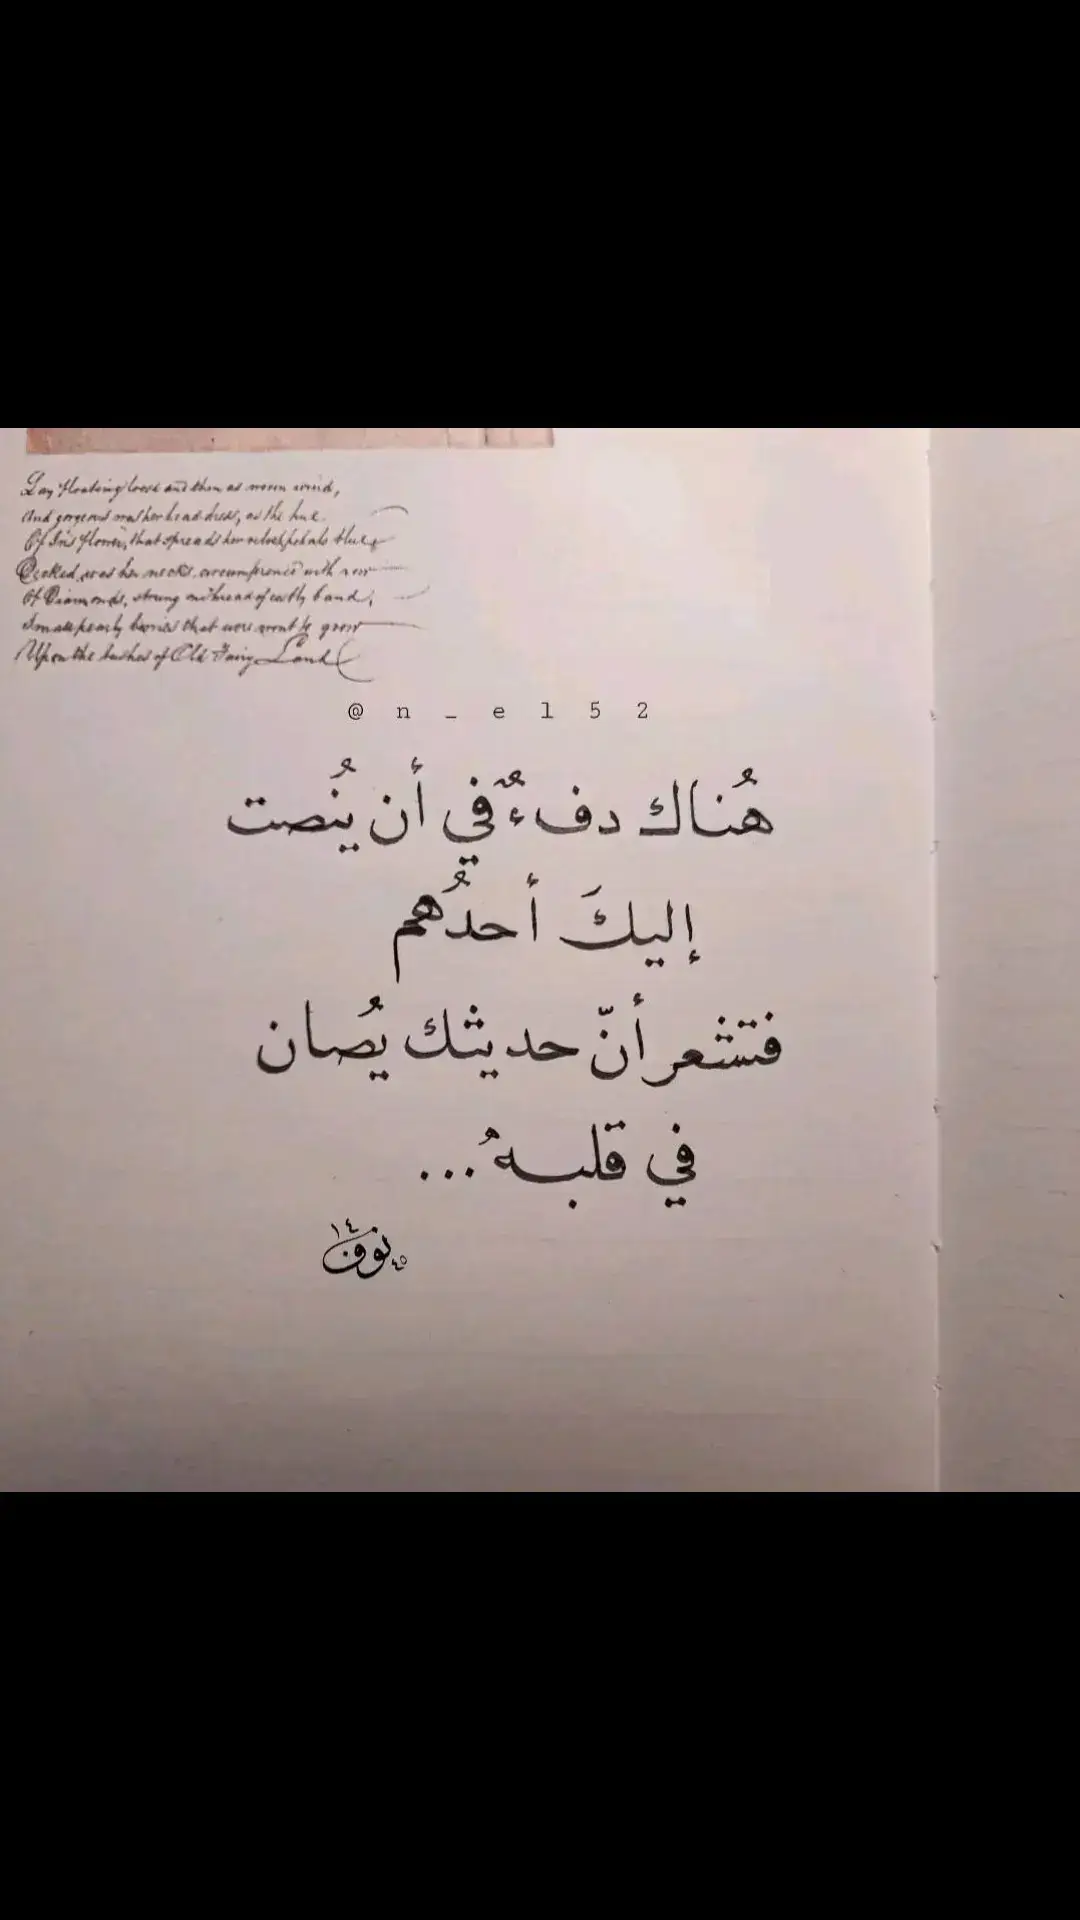 And gorgeous was her head dress, as the hue
Of Iris flower, that spreads her velvet petals blue
Decked was her neck's circumference with row
Of Diamonds, strung on thread of costly band,
Small pearly berries that were wont to grow
Upon the bushes of Old Fairy Land
@n_el52
هُناك دفءٌ في أن يُنصت
إليكَ أحدُهم
فتشعر أنّ حديثك يُصان
في قلبهُ...
نوف ١٤٤٥